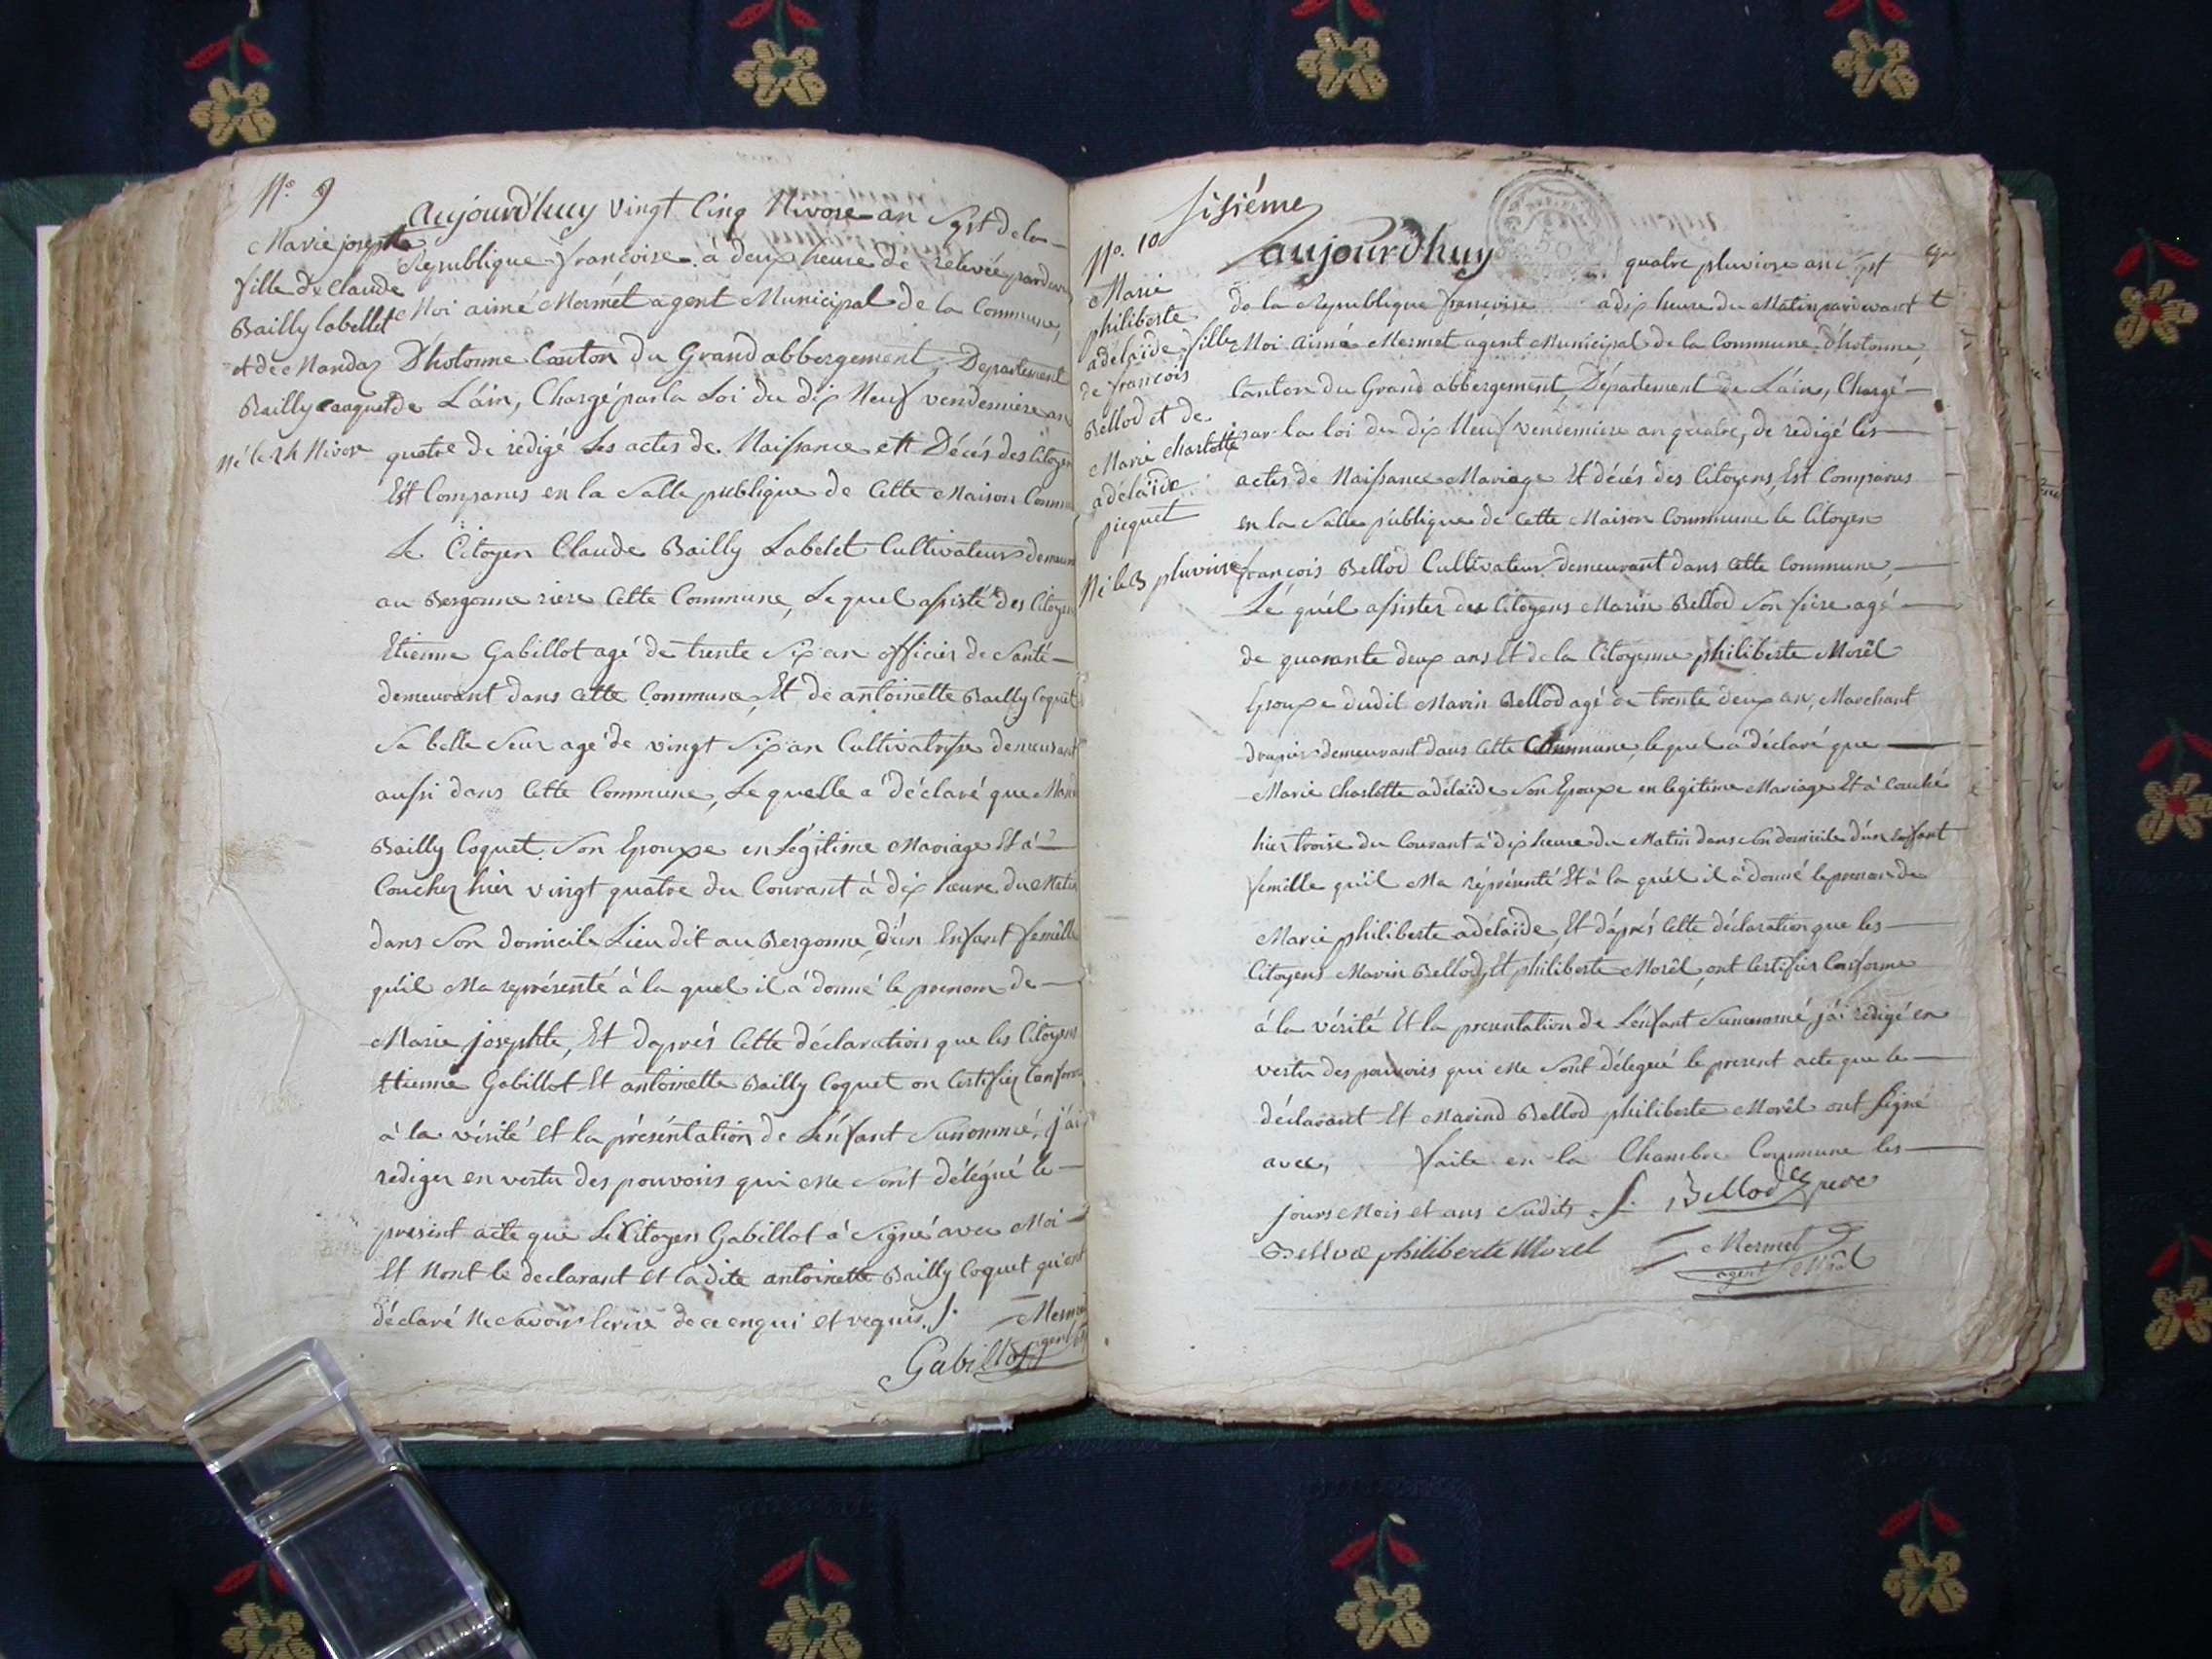 N.º 9
Marie josephte
fille de Claude
Bailly labellet
et de Mandaz
Bailly Caaquet
Né le 24 Nivose
aujourd'huy vingt Cinq Nivose an Sept de la
Republique francoise à deux heure de relevée pardevan
Moi aimé Mermet agent Municipal de la Commune,
D'hotonne Canton du Grand abbergement, Departement
de L'ain, Chargé par la Loi du dix Neuf vendemiere an
quatre de redigé Les actes de Naissance et Décés des Citoyen
Est Comparus en la Salle publique de Cette Maison Commu
Le Citoyen Claude Bailly Labelet Cultivateur demeur
au Bergonne riere Cette Commune, Le quel assisté des Citoyen
Etienne Gabillot agé de trente Six an officier de Santé
demeurant dans Cette Commune, Et de antoinette Bailly Coquet
Sa belle Seur agé de vingt Six an Cultivatrise demeurant
aussi dans Cette Commune, Le quelle a déclaré que Marie
Bailly Coquet Son Epouxe en Légitime Mariage Et à
Coucher hier vingt quatre du Courant à dix heure du Matin
dans Son domicile Lieu dit au Bergonne, d'un Enfant femelle
qu'il Ma représenté à la quel il à donné le prenom de
Marie josephte, Et daprés Cette déclaration que les Citoyens
Etienne Gabillot Et antoinette Bailly Coquet on Certifiez Conform
à la vérité et la présentation de L'enfant Surnommé, j'ai
rediger en vertu des pouvoirs qui me Sont délégué le
present acte que Le Citoyen Gabillot à Signé avec Moi
Et Nont le declarant Et Ladite antoinette Bailly Coquet qui ont
déclaré Ne Savoir Ecrire de ce enqui et requis ./. Merm
Gabillot agent
sisiéme
N.º 10
Marie
philiberte
adelaïde fille
de francois
Bellod et de
Marie Charlotte
adélaïde
picquet
Né le 3 pluviose
aujourd'huy quatre pluviose an sept
de la Republique francoise à dix heure du Matin pardevant
Moi aimé Mermet agent Municipal de la Commune D'hotonne,
Canton du Grand abbergement, Département de L'ain, Chargé
par la loi du dix Neuf vendemiere an quatre, de redigé les
actes de Naissance Mariage Et décés des Citoyens, Est Comparus
en la Salle publique de Cette Maison Commune le Citoyen
francois Bellod Cultivateur demeurant dans Cette Commune,
Le quel assister des Citoyens Marin Bellod Son frere agé
de quarante deux ans Et de la Citoyenne philiberte Morêl
Epouxe dudit Marin Bellod agé de trente deux an, Marchant
drapier demeurant dans Cette Commune, lequel à déclaré que
Marie Charlotte adélaïde Son Epouxe en legitime Mariage Et à couché
hier troise du Courant à dix heure du Matin dans Son domicile d'un Enfant
femille qu'il Ma réprésenté Et à la quél il à donné le prenom de
Marie philiberte adélaïde, Et d'aprés Cette déclaration que les
Citoyens Marin Bellod, Et philiberte Morêl, ont Certifier Conforme
à la vérité Et la presentation de L'énfant Surnommé j'ai redigé en
vertu des pouvoirs qui me Sont délegué le present acte que le
déclarant Et Marind Bellod philiberte Morêl ont Signé
avec, faite en la Chambre Commune les
jours Mois et ans Sudits ./. Bellod pere
Bellod philiberte Morel Mermet
agent